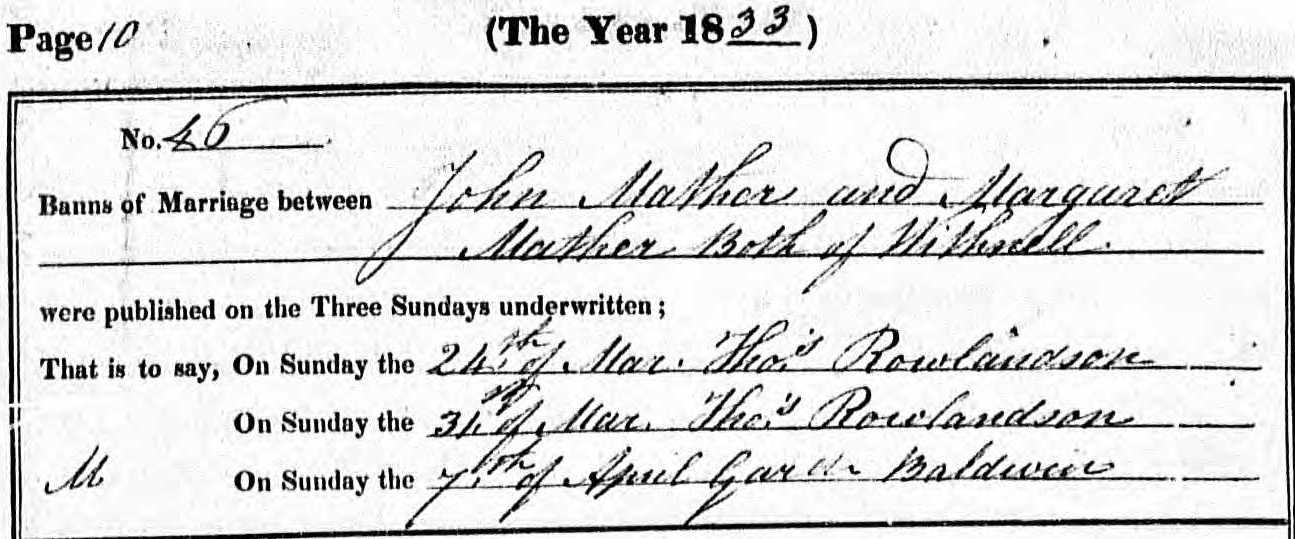 Page 10 (The Year 1833)
No. 46
Banns of Marriage between John Mather and Margaret
Mather Both of Withnell
were published on the Three Sundays underwritten;
That is to say, On Sunday the 24.th of Mar. Tho.s Rowlandson
On Sunday the 31.st of Mar. Tho.s Rowlandson
M On Sunday the 7.th of April Baldwin